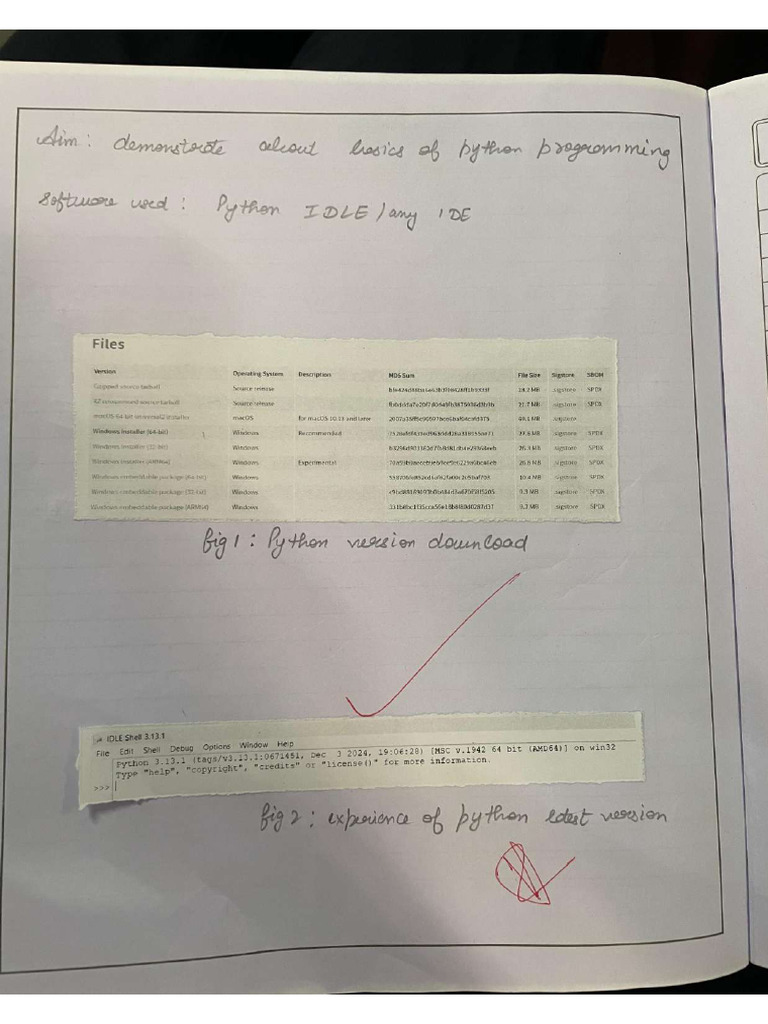 Aim: demonstrate about basics of python programming
Software used: Python IDLE/any IDE
Files
Version Operating System Description MD5 Sum File Size Sigstore SBOM
Gzipped source tarball Source release .sigstore SPDX
XZ compressed source tarball Source release .sigstore SPDX
macOS 64-bit universal2 installer macOS for macOS 10.13 and later .sigstore
Windows installer (64-bit) Windows Recommended .sigstore SPDX
Windows installer (32-bit) Windows .sigstore SPDX
Windows installer (ARM64) Windows Experimental .sigstore SPDX
Windows embeddable package (64-bit) Windows .sigstore SPDX
Windows embeddable package (32-bit) Windows .sigstore SPDX
Windows embeddable package (ARM64) Windows .sigstore SPDX
fig 1: Python version download
IDLE Shell 3.13.1
File Edit Shell Debug Options Window Help
Python 3.13.1 (tags/v3.13.1:0671451, Dec 3 2024, 19:06:28) [MSC v.1942 64 bit (AMD64)] on win32
Type "help", "copyright", "credits" or "license()" for more information.
>>>
fig 2: experience of python latest version